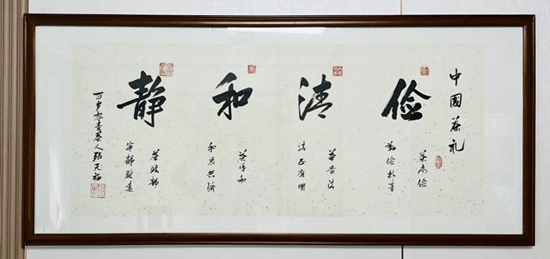 中國茶礼
俭
茶尚俭
勤俭朴素
清
茶贵清
清正廉明
和
茶导和
和衷共济
静
茶致静
宁静致远
茶人张天福